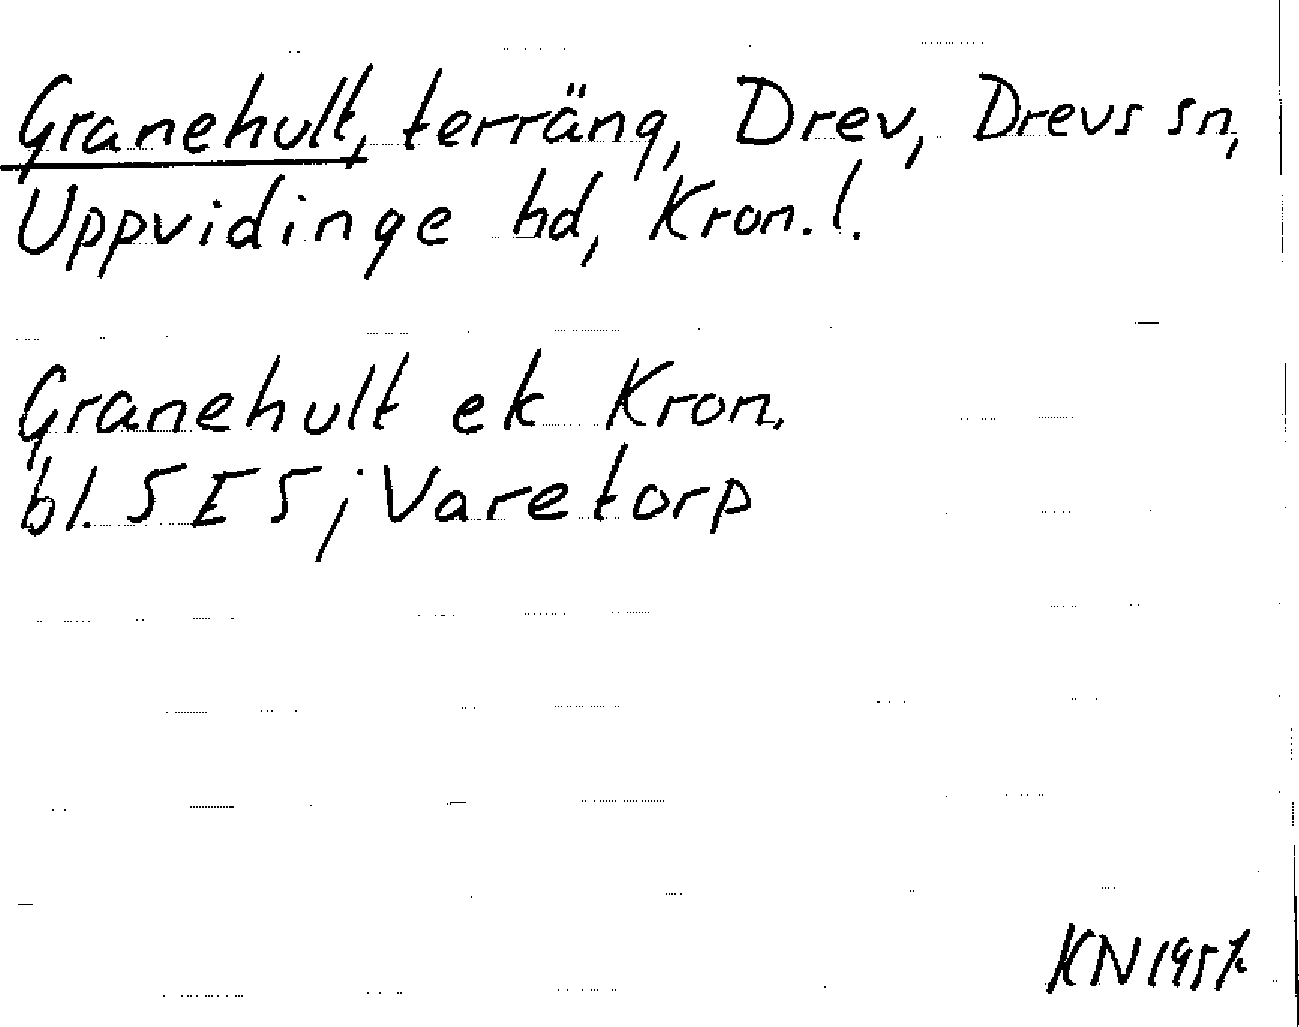 Granehult, terräng, Drev, Drevs sn,
Uppvidinge hd, Kron. l.
Granehult ek Kron.
bl. 5 E 5; Varetorp
KN 1957